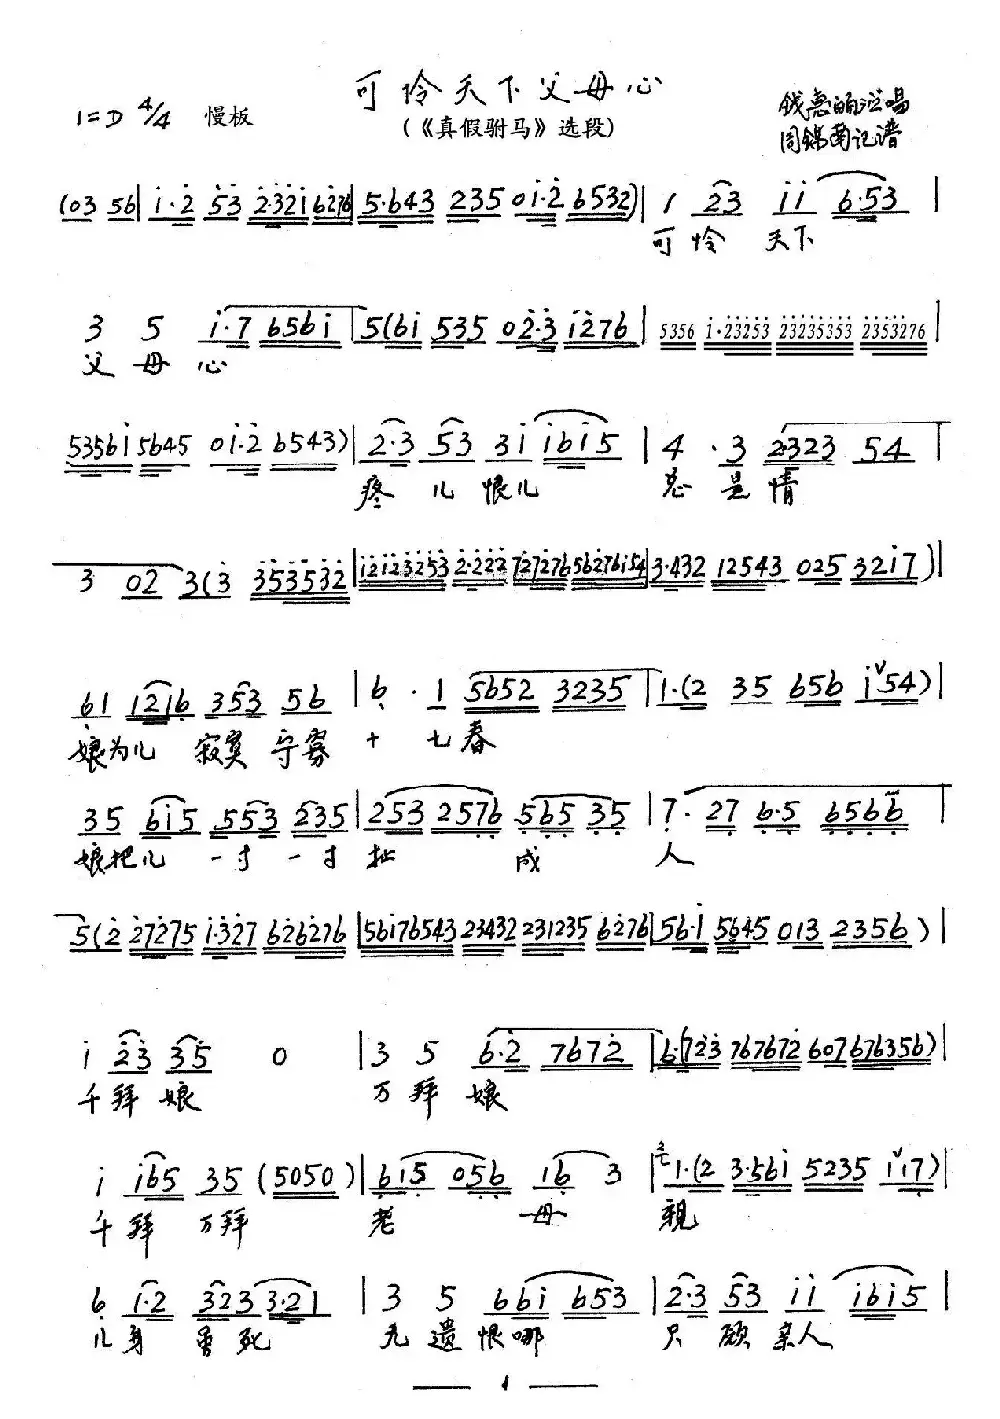 可怜天下父母心
(《真假驸马》选段)
1=D 4/4 慢板
钱惠丽演唱
周锦菊记谱
(03 56 | i·2 53 2·321 6276 | 5·643 235 0i·2 6532) | 1 23 ii 6·53 |
可怜 天下
3 5 i·7 656i | 5(6i 535 02·3 i276 | 5356 i·23253 23235353 2353276 |
父母心
5356i 5645 0i·2 6543) | 2·3 53 3i i6i5 | 4·3 2323 54 |
疼儿恨儿 总是情
3 02 3(3 353532 | i2i23253 2·222 727276 56276i54 | 3·432 12543 025 32i7) |
61 1216 353 56 | 6·1 5652 3235 | 1·(2 35 656 i54) |
娘为儿 寂寞守寡 十七春
35 6i5 553 235 | 253 2576 565 35 | 7·27 6·5 6566 |
娘把儿 一寸一寸扯 成 人
5(2 27275 i·327 626276 | 56i76543 23432 231235 6276 | 56·i 5645 013 2356) |
i 23 35 0 | 3 5 6·2 7672 | 6·(723 767672 607676356) |
千拜娘 万拜娘
i i65 35 (5050) | 6i5 056 16 3 | 1·(2 3·56i 5235 ii7) |
千拜 万拜 老 母 亲
6 1·2 323 3·21 | 3 5 66i 653 | 2·3 53 ii i6i5 |
儿身虽死 无遗恨哪 只顾亲人
1